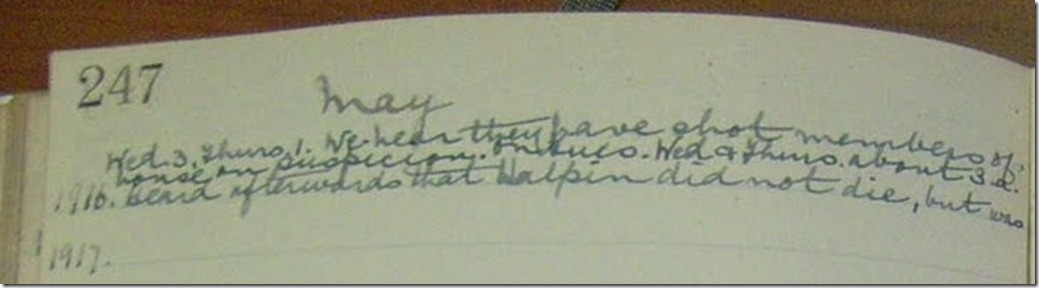 247
May
Wed. 3, Thurs. 1. We hear they have shot members of
house on suspicion. On Tues. Wed & Thurs. about 3 a.
1916. heard afterwards that Halpin did not die, but was
1917.